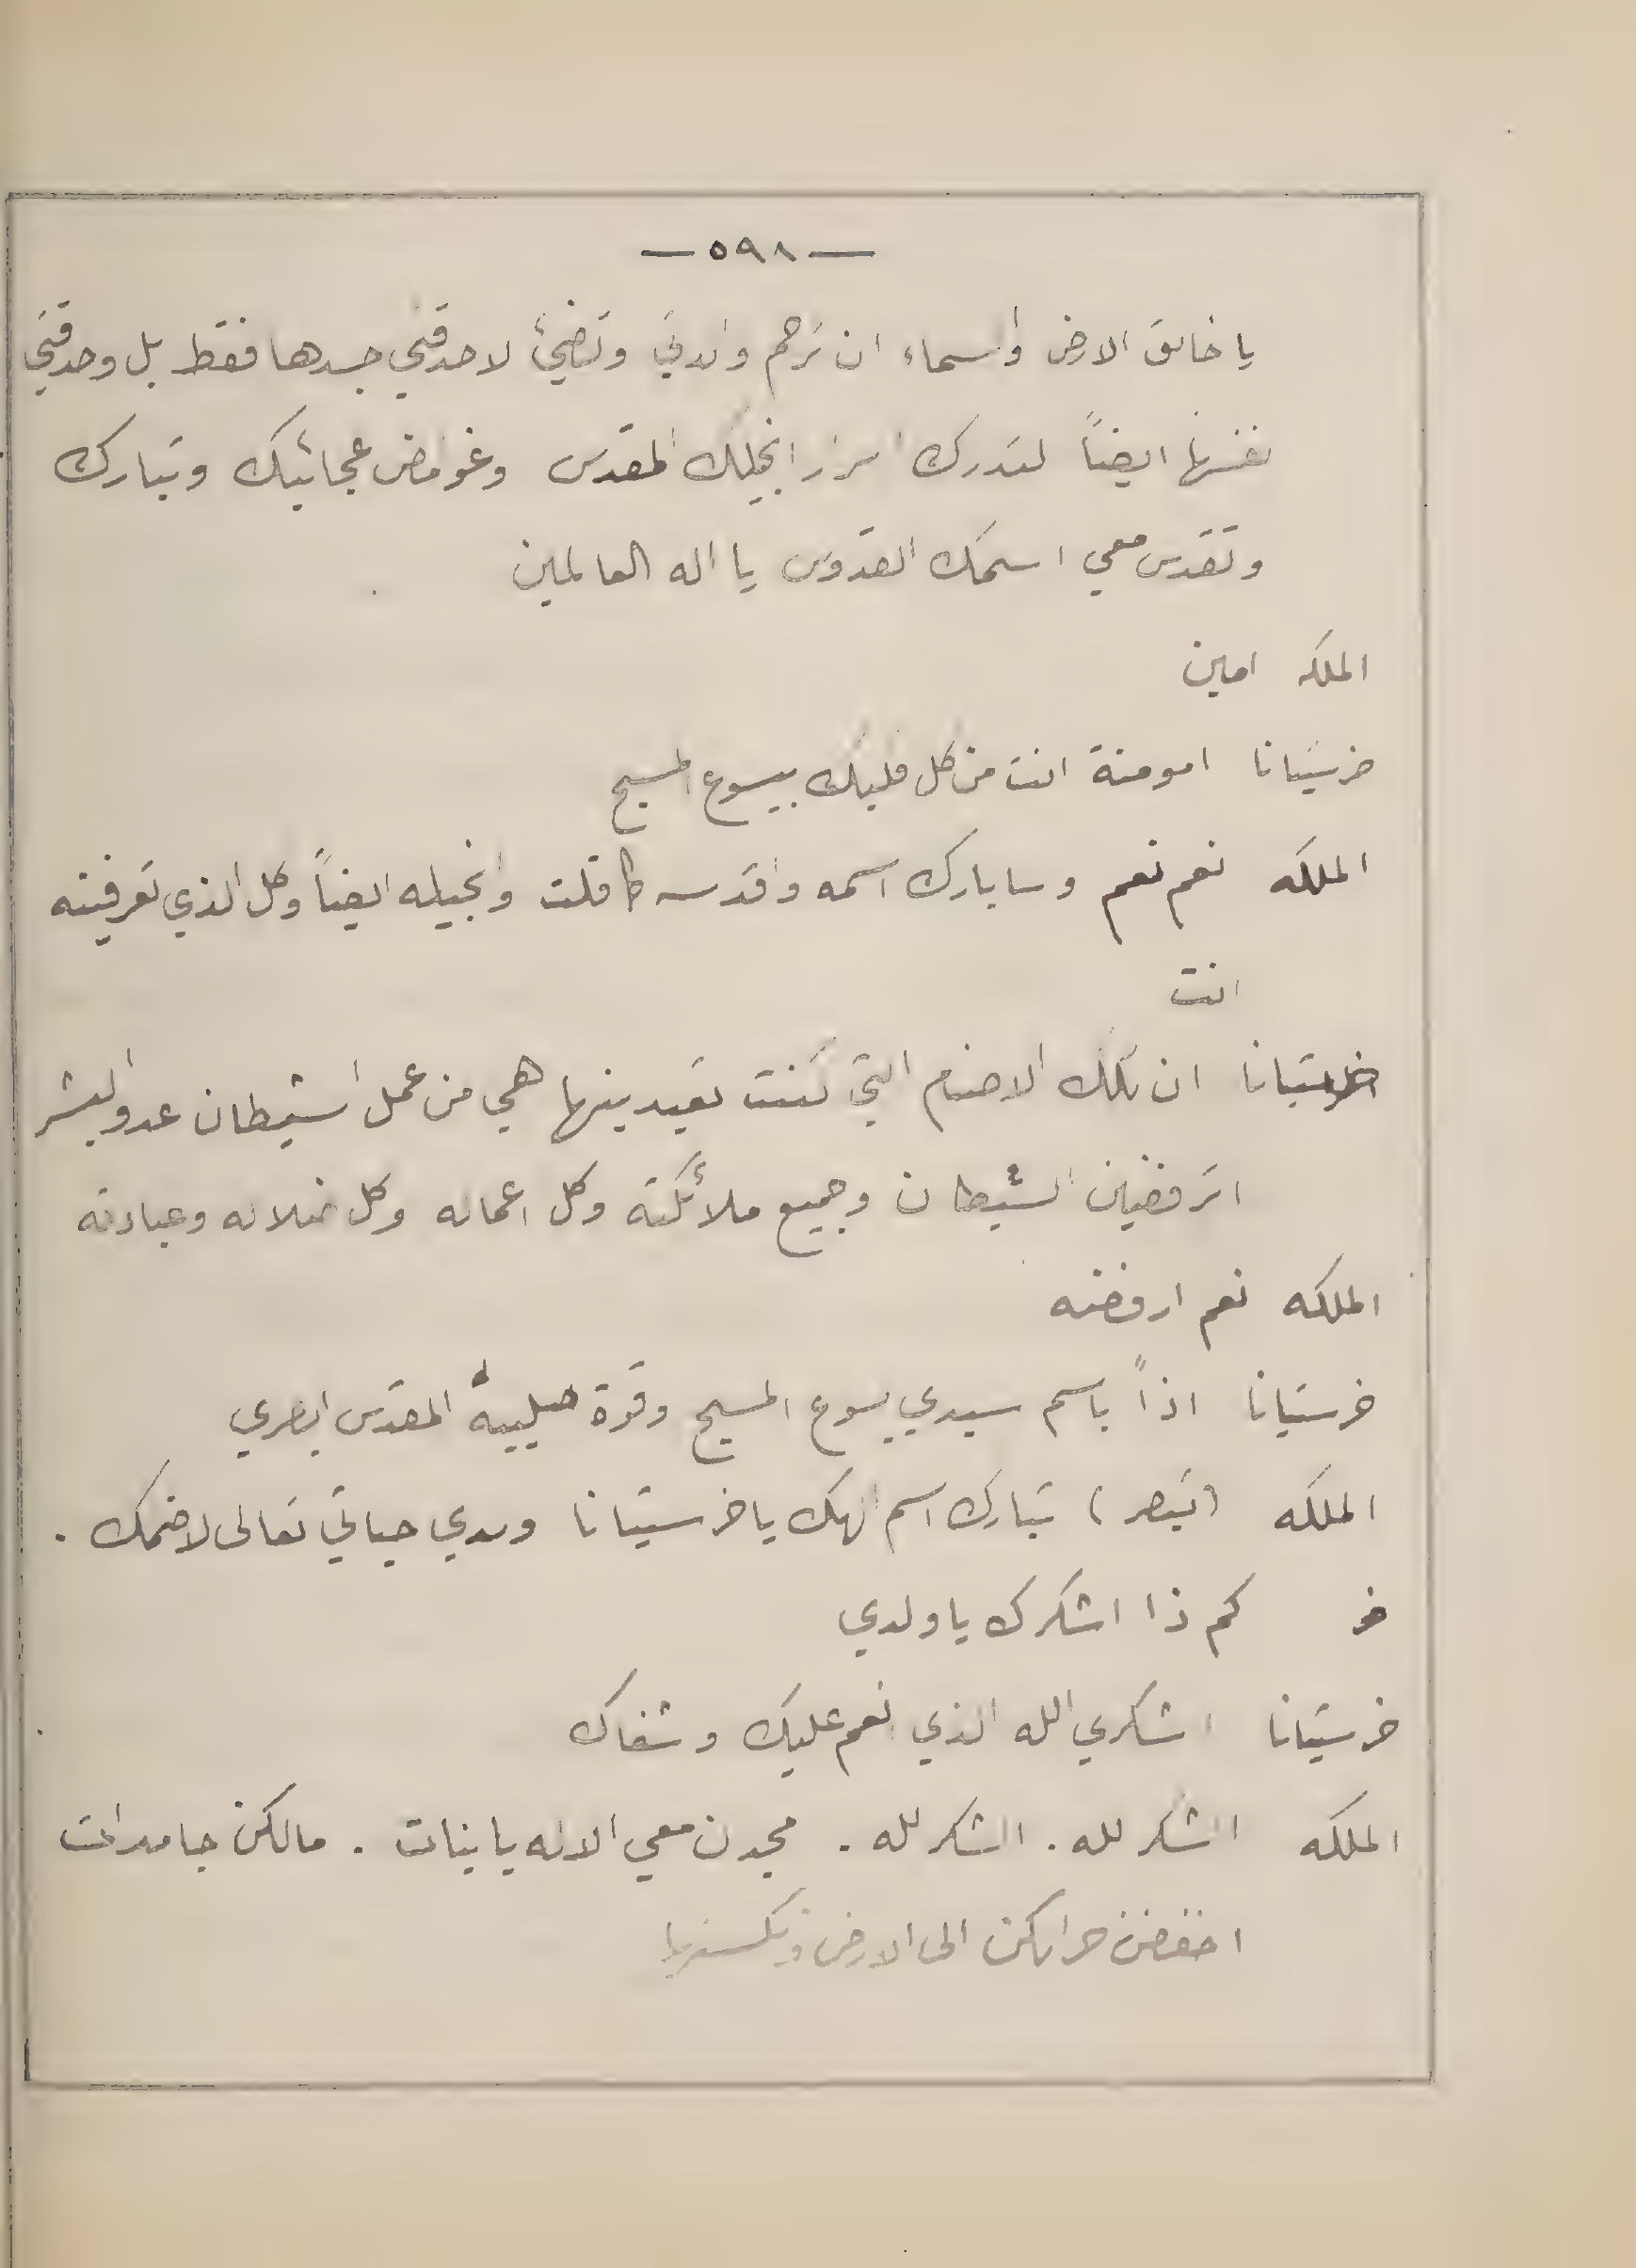 — ٥٩٨ —
يا خالق الارض والسماء ان ترحم والدتي وتضيئ لا حدقتي جسدها فقط بل وحدقتي
نفسها ايضاً لتدرك اسرار انجيلك المقدس وغوامض عجائبك وتبارك
وتقدس معي اسمك القدوس يا اله العالمين
الملكه امين
خرستيانا امومنة انت من كل قلبك بيسوع المسيح
الملكه نعم نعم وسابارك اسمه واقدسه كما قلت وانجيله ايضاً وكل الذي تعرفينه
انت
خرستيانا ان تلك الاصنام التي كنت تعبدينها هي من عمل الشيطان عدو البشر
اترفضين الشيطان وجميع ملائكته وكل اعماله وكل ضلاله وعبادته
الملكه نعم ارفضه
خرستيانا اذاً باسم سيدي يسوع المسيح وقوة صليبه المقدس ابصري
الملكه (تبصر) تبارك اسم الهك يا خرستيانا ولدي حياتي تعالى لاضمك .
خر كم ذا اشكرك يا ولدي
خرستيانا اشكري الله الذي انعم عليك وشفاك
الملكه الشكر لله . الشكر لله . مجدن معي الاله يا بنات . مالكن جامدات
اخفضن حرابكن الى الارض